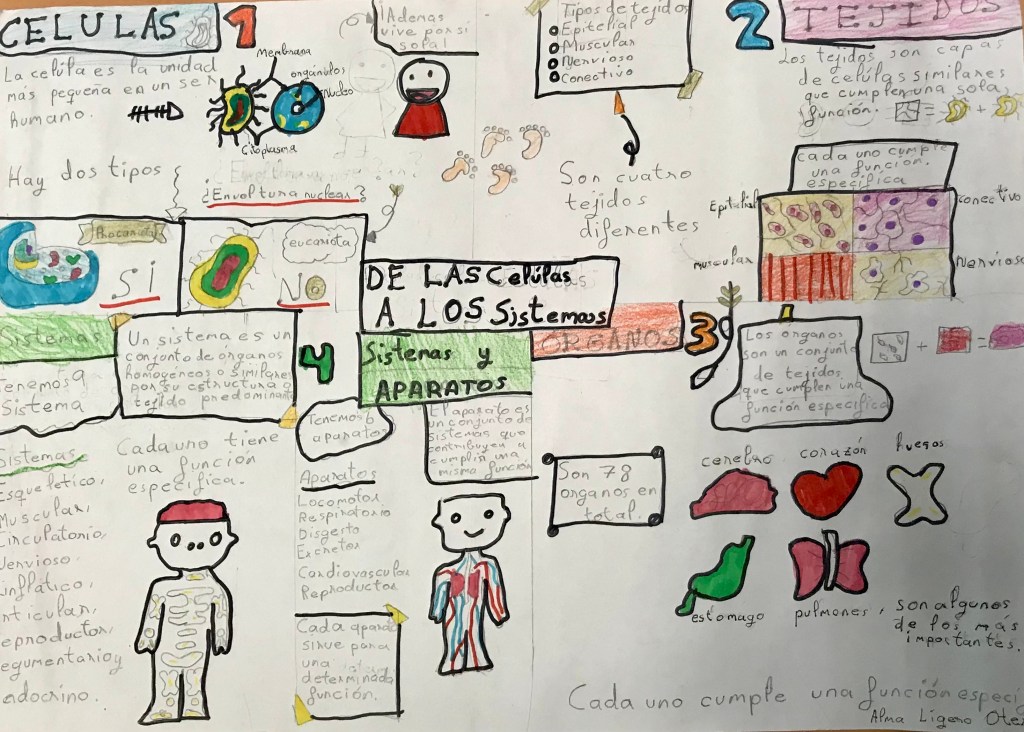 CELULAS
1
La celúla es la unidad
más pequeña en un ser
humano.
Membrana
orgánulos
Nucleo
Citoplasma
¡Ademas
vive por sí
sola!
Hay dos tipos
¿Envoltura nuclear?
Procariota
SÍ
eucariota
NO
Tipos de tejidos
Epitelial
Muscular
Nervioso
Conectivo
Son cuatro
tejidos
diferentes
2
TEJIDOS
Los tejidos son capas
de celúlas similares
que cumplen una sola
función.
= +
cada uno cumple
una función.
especifica
Epitelial
conectivo
muscular
Nervioso
DE LAS Celúlas
A LOS Sistemas
Sistemas y
APARATOS
ORGANOS
3
Los órganos
son un conjunto
de tejidos
que cumplen una
función especifica
+ =
Son 78
organos en
total.
cerebro
corazón
huesos
estomago
pulmones, son algunos
de los más
importantes.
Cada uno cumple una función especí
Alma Ligero Ote
4
Sistemas
Tenemos 9
Sistema
Un sistema es un
conjunto de organos
homogéneos o similares
por su estructura o
tejido predominante
Cada uno tiene
una función
especifica.
Sistemas
Esquelético,
Muscular,
Circulatorio,
Nervioso,
infático,
rticular,
eproductor,
egumentario y
endocrino.
Tenemos 6
aparatos
El aparato es
un conjunto de
sistemas que
contribuyen a
cumplir una
misma función
Aparatos
Locomotor
Respiratorio
Disgesto
Excretor
Cardiovascular
Reproductor
Cada apara
sirve para
una
determinada
función.